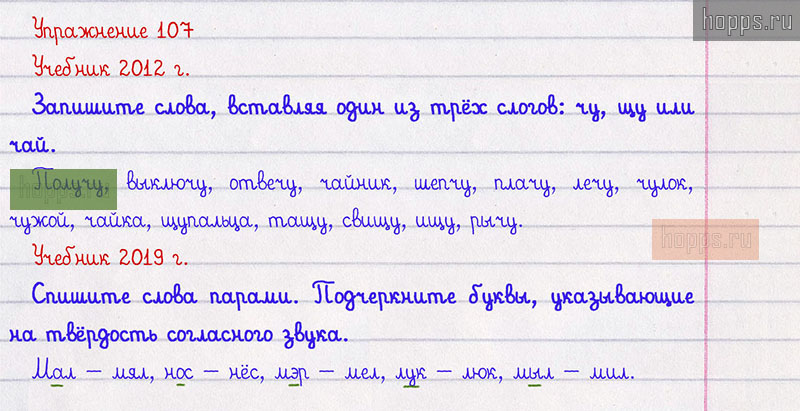 hopps.ru
Упражнение 107
Учебник 2012 г.
Запишите слова, вставляя один из трёх слогов: чу, щу или
чай.
Получу, выключу, отвечу, чайник, шепчу, плачу, лечу, чулок,
hopps.ru
чужой, чайка, щупальца, тащу, свищу, ищу, рычу.
hopps.ru
Учебник 2019 г.
Спишите слова парами. Подчеркните буквы, указывающие
на твёрдость согласного звука.
Мал – мял, нос – нёс, мэр – мел, лук – люк, мыл – мил.